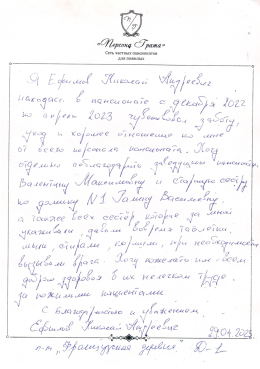 «Персона Грата»
Сеть частных пансионатов
для пожилых
Я Ефимов Николай Андреевич
находясь в пансионате с декабря 2022
по апрель 2023 чувствовал заботу,
уход и хорошее отношение ко мне
от всего персонала пансионата. Хочу
отдельно поблагодарить заведующую пансионата
Валентину Максимовну и старшую сестру
по домику N1 Галину Васильевну,
а также всех сестёр, которые за мной
ухаживали, давали вовремя таблетки,
мыли, стирали, кормили, при необходимости
вызывали врача. Хочу пожелать им всем
доброго здоровья в их нелёгком труде
за пожилыми пациентами.
С благодарностью и уважением
Ефимов Николай Андреевич
29.04.2023.
п-т „Французская деревня" D-1